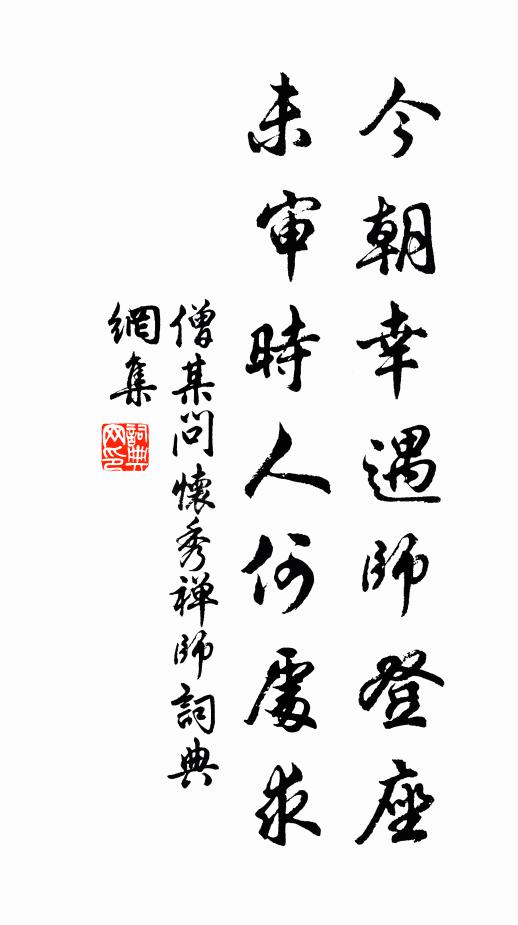 今朝幸遇師登座
未審時人何處求
僧某問懷秀禅師詞典
網集
詞典
网印